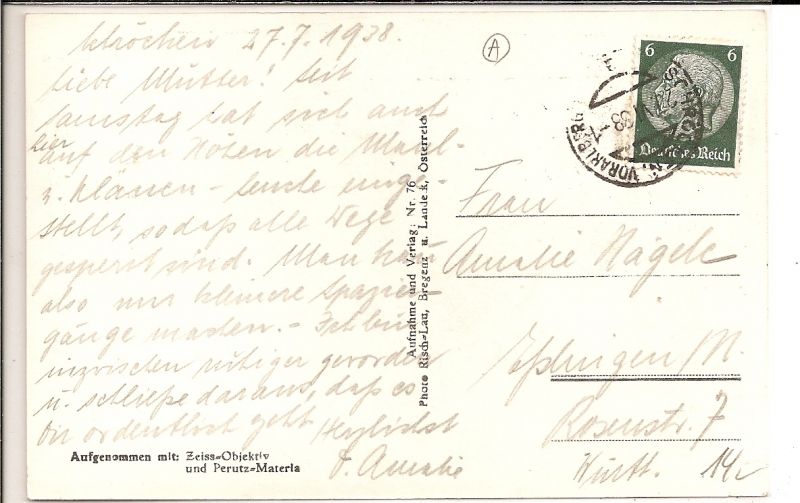 Schröcken 27.7.1938.
Liebe Mutter! Seit
Samstag hat sich auch
hier
auf den Höhen die Maul-
u. Klauen-seuche einge-
stellt, sodaß alle Wege
gesperrt sind. Man kann
also nur kleinere Spazier-
gänge machen. - Ich bin
inzwischen ruhiger geworden
u. schließe daraus, daß es
Dir ordentlich geht
Herzlichst
Amalie
Aufgenommen mit: Zeiss-Objektiv
und Perutz-Materia
Aufnahme und Verlag: Nr. 76
Photo Risch-Lau, Bregenz u. Landeck, Österreich
A
6 6
Deutsches Reich
VORARLBERG
Frau
Amalie Nägele
Esslingen/N.
Rosenstr. 7
Württ.